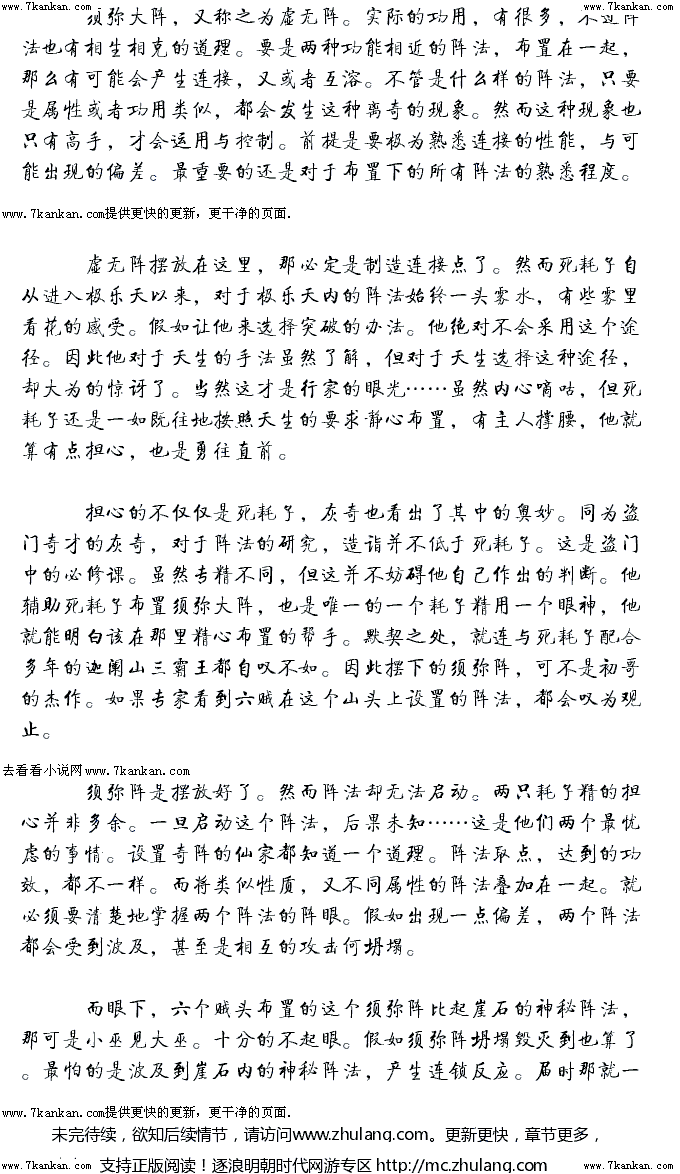 www.7kankan.com www.7kankan.com
须弥大阵，又称之为虚无阵。实际的功用，有很多，不过阵
法也有相生相克的道理。要是两种功能相近的阵法，布置在一起，
那么有可能会产生连接，又或者互溶。不管是什么样的阵法，只要
是属性或者功用类似，都会发生这种离奇的现象。然而这种现象也
只有高手，才会运用与控制。前提是要极为熟悉连接的性能，与可
能出现的偏差。最重要的还是对于布置下的所有阵法的熟悉程度。
www.7kankan.com提供更快的更新，更干净的页面.
虚无阵摆放在这里，那必定是制造连接点了。然而死耗子自
从进入极乐天以来，对于极乐天内的阵法始终一头雾水，有些雾里
看花的感受。假如让他来选择突破的办法。他绝对不会采用这个途
径。因此他对于天生的手法虽然了解，但对于天生选择这种途径，
却大为的惊讶了。当然这才是行家的眼光……虽然内心嘀咕，但死
耗子还是一如既往地按照天生的要求静心布置，有主人撑腰，他就
算有点担心，也是勇往直前。
担心的不仅仅是死耗子，灰奇也看出了其中的奥妙。同为盗
门奇才的灰奇，对于阵法的研究，造诣并不低于死耗子。这是盗门
中的必修课。虽然专精不同，但这并不妨碍他自己作出的判断。他
辅助死耗子布置须弥大阵，也是唯一的一个耗子精用一个眼神，他
就能明白该在那里精心布置的帮手。默契之处，就连与死耗子配合
多年的迦阑山三霸王都自叹不如。因此摆下的须弥阵，可不是初哥
的杰作。如果专家看到六贼在这个山头上设置的阵法，都会叹为观
止。
去看看小说网www.7kankan.com
须弥阵是摆放好了。然而阵法却无法启动。两只耗子精的担
心并非多余。一旦启动这个阵法，后果未知……这是他们两个最忧
虑的事情。设置奇阵的仙家都知道一个道理。阵法取点，达到的功
效，都不一样。而将类似性质，又不同属性的阵法叠加在一起。就
必须要清楚地掌握两个阵法的阵眼。假如出现一点偏差，两个阵法
都会受到波及，甚至是相互的攻击何坍塌。
而眼下，六个贼头布置的这个须弥阵比起崖石的神秘阵法，
那可是小巫见大巫。十分的不起眼。假如须弥阵坍塌毁灭到也算了
。最怕的是波及到崖石内的神秘阵法，产生连锁反应。届时那就一
www.7kankan.com提供更快的更新，更干净的页面.
未完待续，欲知后续情节，请访问www.zhulang.com。更新更快，章节更多，
支持正版阅读！逐浪明朝时代网游专区 http://mc.zhulang.com
www.7kankan.com www.7kankan.com